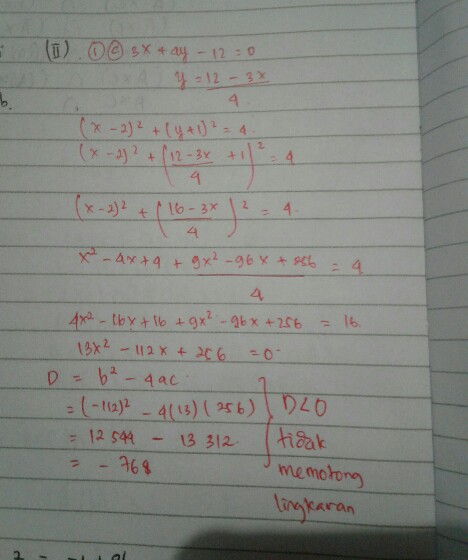 (II). ① ⓐ 3x + 4y - 12 = 0
y = 12 - 3x
4
b.
(x - 2)² + (y+1)² = 4.
(x - 2)² + (12-3x/4 + 1)² = 4
(x-2)² + (16-3x/4)² = 4.
x² - 4x + 4 + 9x² - 96x + 256 = 4
4
4x² - 16x + 16 + 9x² - 96x + 256 = 16
13x² - 112x + 256 = 0
D = b² - 4ac
= (-112)² - 4(13)(256) D<0
= 12 544 - 13 312. tidak
= - 768 memotong
lingkaran